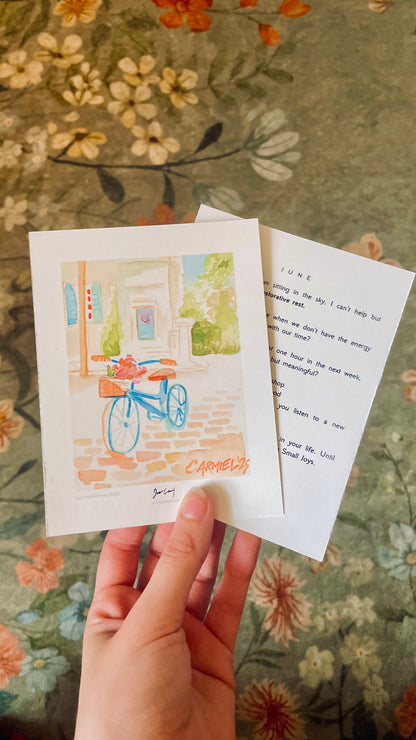 CARMEL '25
JUNE
n sitting in the sky, I can't help but
storative rest.
when we don't have the energy
with our time?
st one hour in the next week,
but meaningful?
shop
od
you listen to a new
in your life. Until
Small Joys.